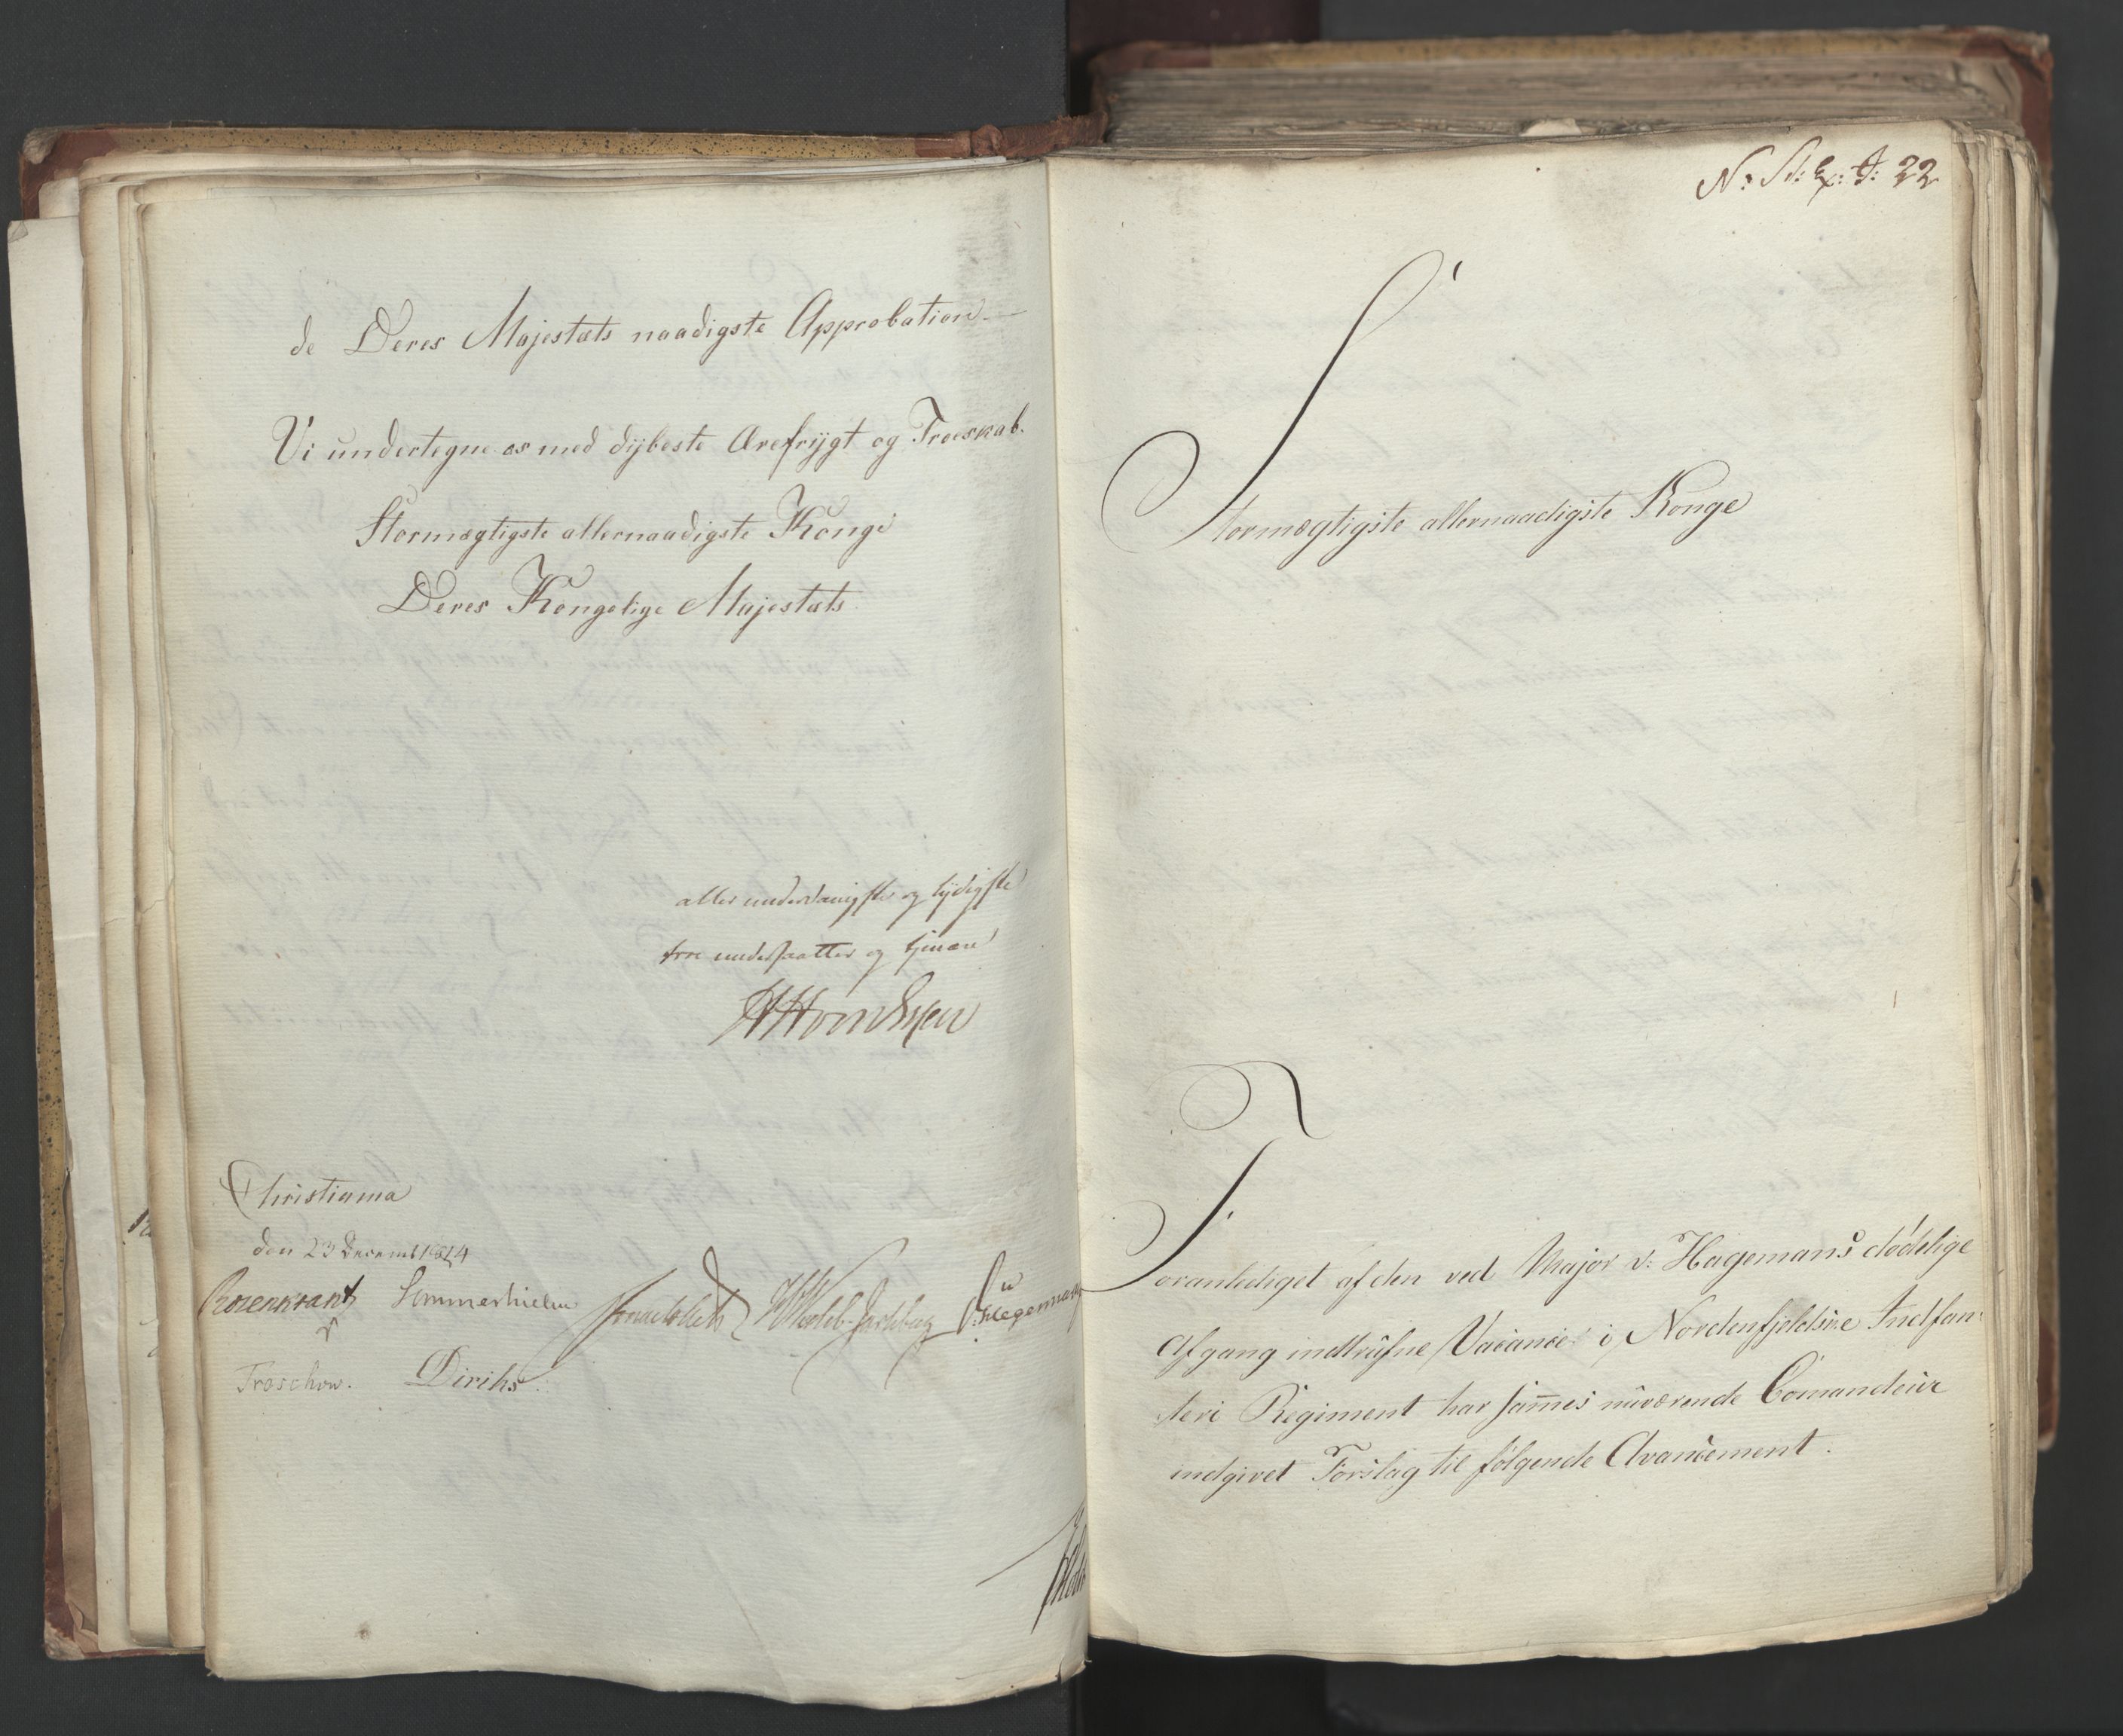 de Deres Majestæts naadigste Approbation.—
Vi undertegne os med dijbeste Ærefrijgt og Troeskab.
Stormægtigste allernaadigste Konge
Deres Kongelige Majestæts
aller underdanigste og lydigste
troe undersaatter og tjenere
Christiania
den 23 Decembr 1814
Rosenkrantz Sommerhielm Hegermann
Treschow. Diriks
N: St: Ex: A: 22
Stormægtigste allernaadigste Konge
Foranlediget af den ved Major v: Hagemans dødelige
Afgang indtrufne Vacance i Nordenfjeldske Indfan
teri Regiment har sam̅es nuværende Com̅andeur
indgivet Forslag til følgende Avancement.